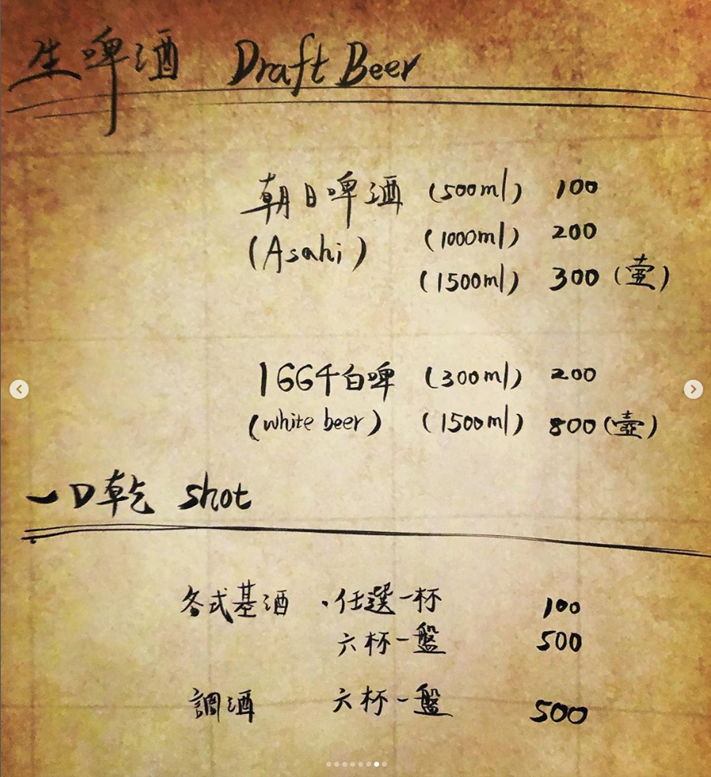 生啤酒 Draft Beer
朝日啤酒 (500ml) 100
(Asahi) (1000ml) 200
(1500ml) 300 (壷)
1664白啤 (300ml) 200
(white beer) (1500ml) 800 (壷)
一口乾 shot
各式基酒 ·任選一杯 100
六杯一盤 500
調酒 六杯一盤 500